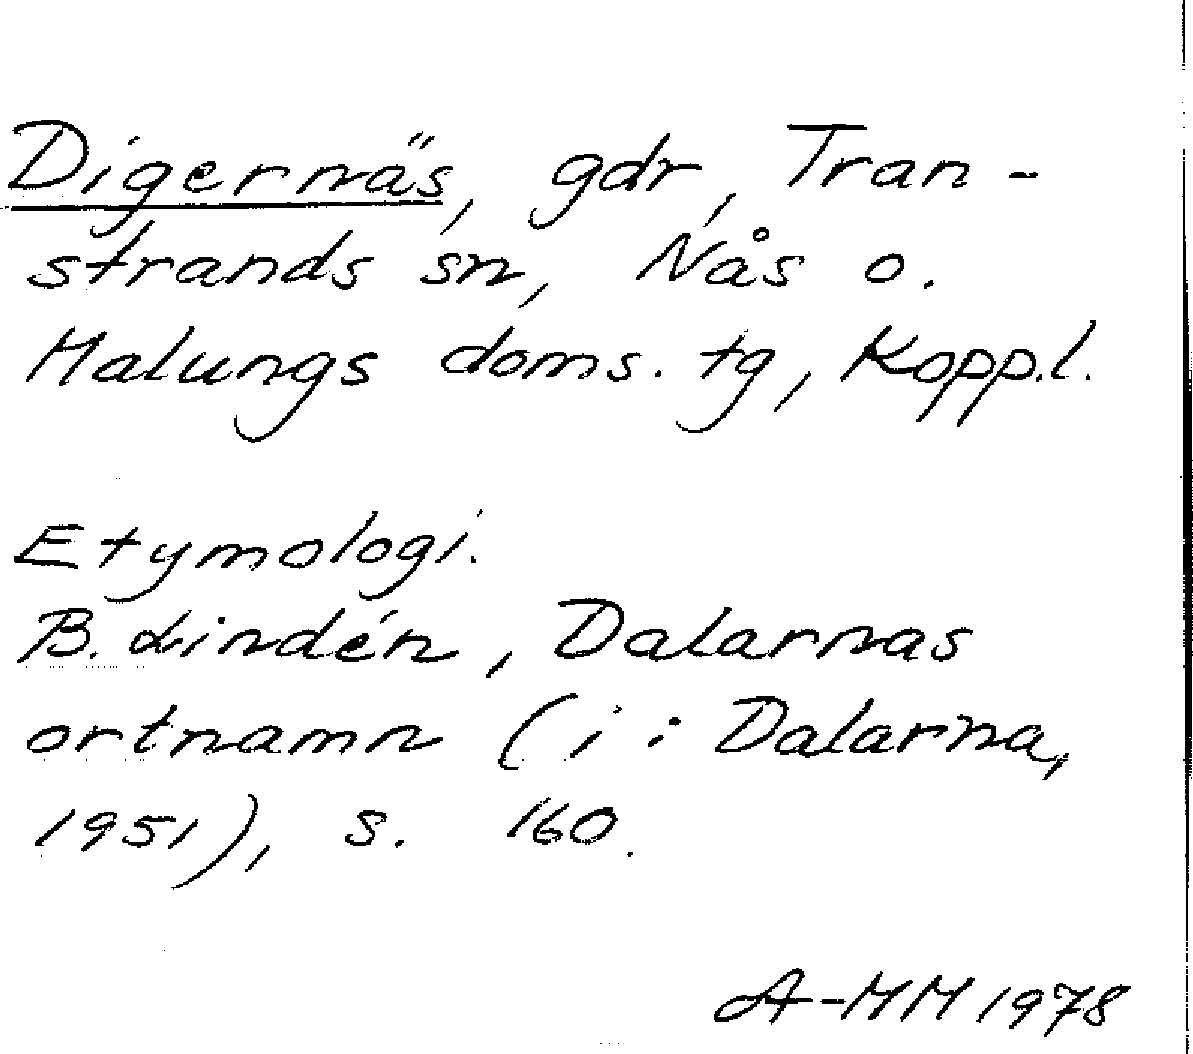 Digernäs, gdr, Tran-
strands sn, Nås o.
Malungs doms. tg, Kopp.l.
Etymologi.
B. Lindén, Dalarnas
ortnamn (i: Dalarna,
1951), s. 160.
A-MM 1978